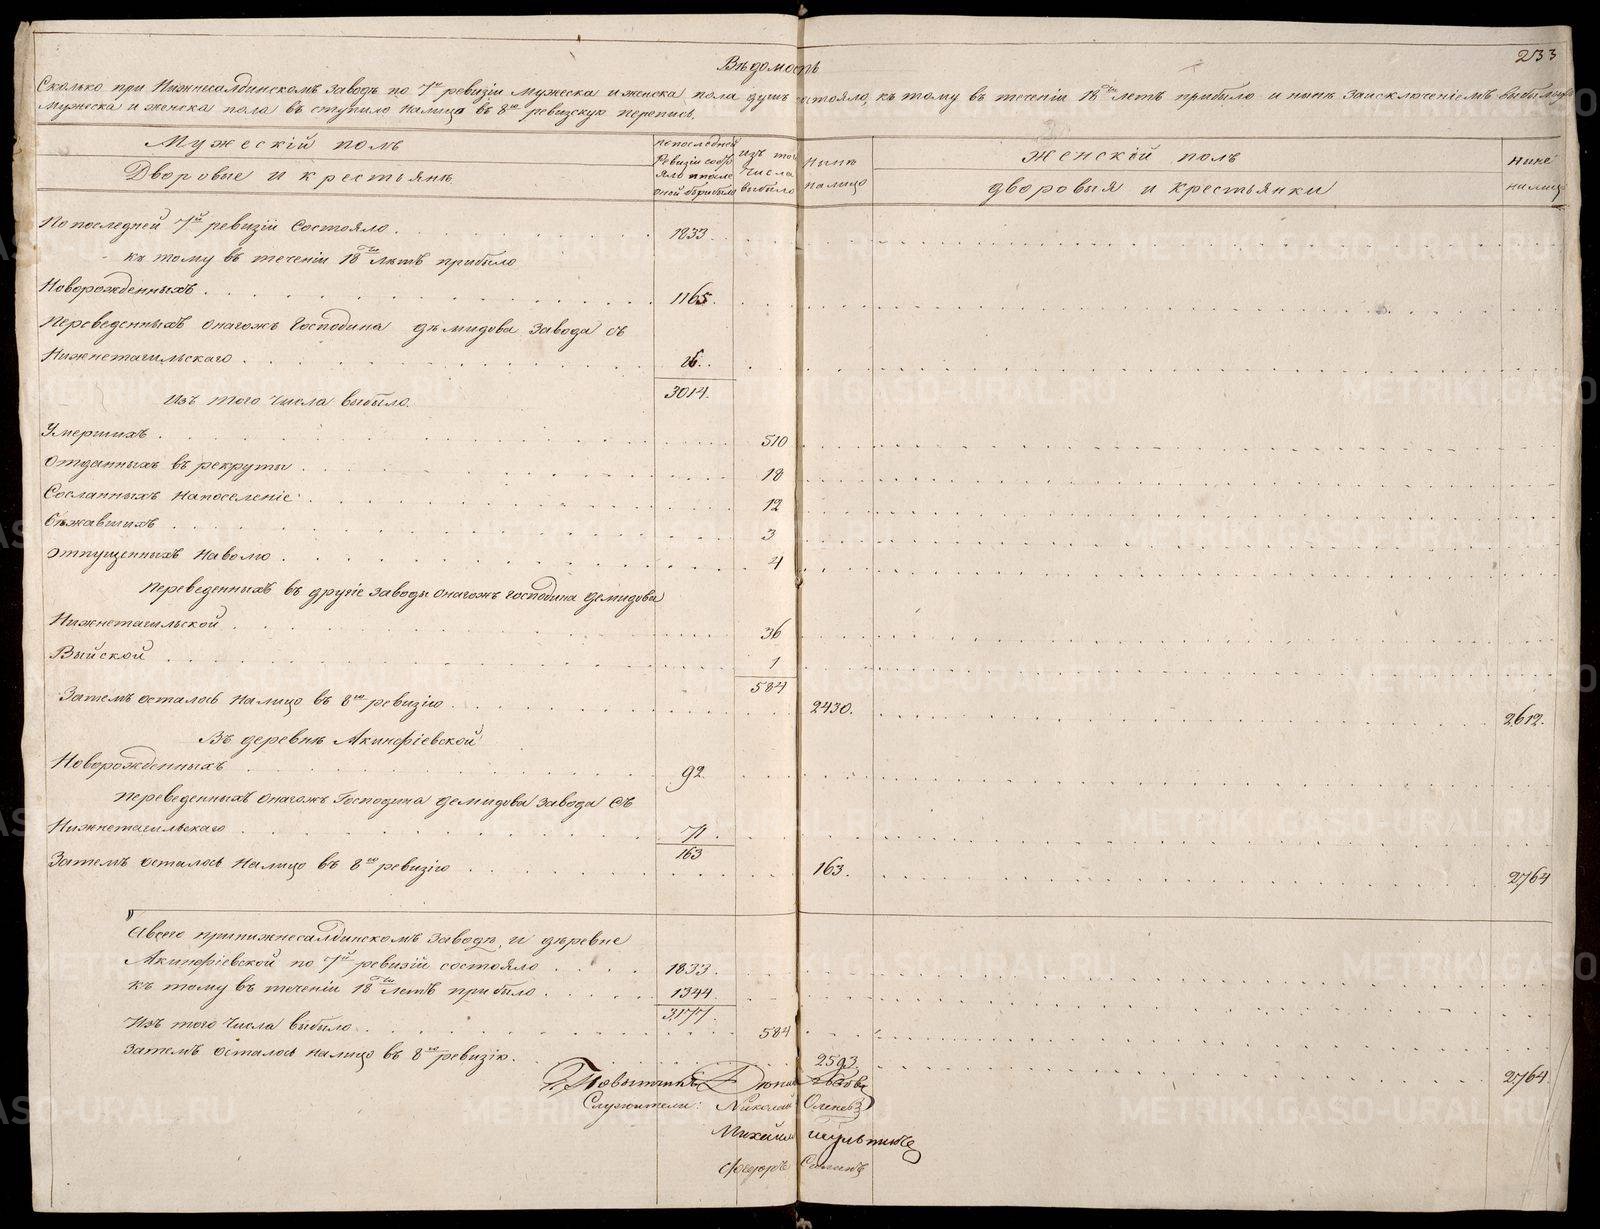 233
Вѣдомость
Сколько при Нижнесалдинскомъ заводѣ по 7й ревизіи мужеска и женска пола душъ состояло, къ тому въ теченіи 18ти лѣтъ прибыло и нынѣ заисключеніемъ выбылыхъ
мужеска и женска пола въ ступило налицо въ 8ю ревизскую перепись.
Мужескій полъ
Дворовые и крестьяне
Попоследней ревизіи состояло и после оной прибыло
Изъ того числа выбыло
Нынѣ налицо
Женскій полъ
дворовыя и крестьянки
Ныне налицо
Попоследней 7й ревизіи состояло 1833.
къ тому въ теченіи 18ти лѣтъ прибыло
Новорожденныхъ 1165.
Переведенныхъ онагожъ Господина Демидова завода съ
Нижнетагильскаго 16.
3014.
Изъ того числа выбыло.
Умершихъ 510
Отданныхъ въ рекруты 18
Сосланныхъ напоселеніе 12
Бѣжавшихъ 3
Отпущенныхъ наволю 4
Переведенныхъ въ другіе заводы онагожъ господина Демидова
Нижнетагильской 36
Выйской 1
584
Затемъ осталось налицо въ 8ю ревизію 2430. 2612.
Въ деревнѣ Акинфіевской
Новорожденныхъ 92.
Переведенныхъ онагожъ Господина Демидова завода съ
Нижнетагильскаго 71.
163
Затемъ осталось налицо въ 8ю ревизію 163. 2764
Авсего принижнесалдинскомъ заводѣ, и деревне
Акинфіевской по 7й ревизіи состояло 1833.
къ тому въ теченіи 18ти лѣтъ прибыло 1344.
3177.
Изъ того числа выбыло 584
Затемъ осталось налицо въ 8ю ревизію. 2593 2764.
Служители: Николай
Михайло
Федоръ
METRIKI.GASO-URAL.RU